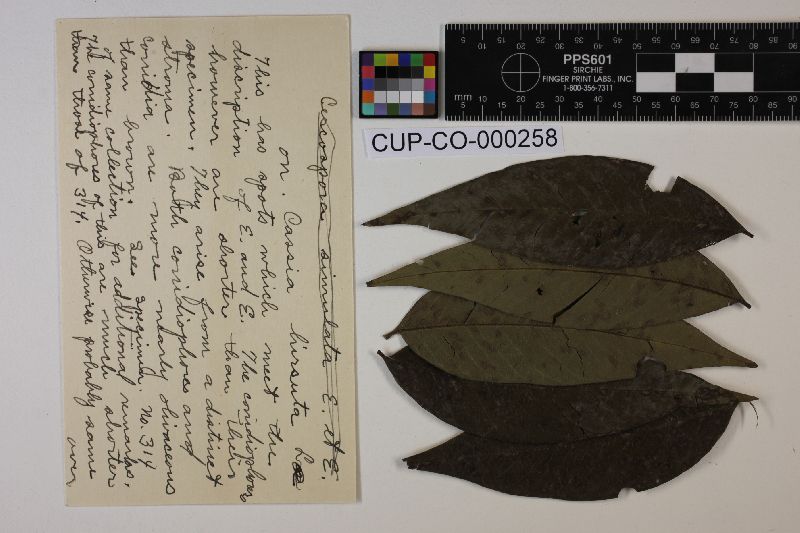 Cercospora simulata E. et E.
on. Cassia hirsuta L
This has spots which meet the
discription of E. and E. The conidiophores
however are shorter than their
specimen. They arise from a distinct
stroma. Both conidiophores and
conidia are more nearly olivaceous
than brown. See specimen No. 314
of same collection for additional remarks.
The conidiophores of this are much shorter
than those of 314. Otherwise probably same
over
PPS601
SIRCHIE
FINGER PRINT LABS., INC.
1-800-356-7311
mm
5 10 15 20 25 30 35 40 45 50 55 60 65 70 75 80 85 90
CUP-CO-000258